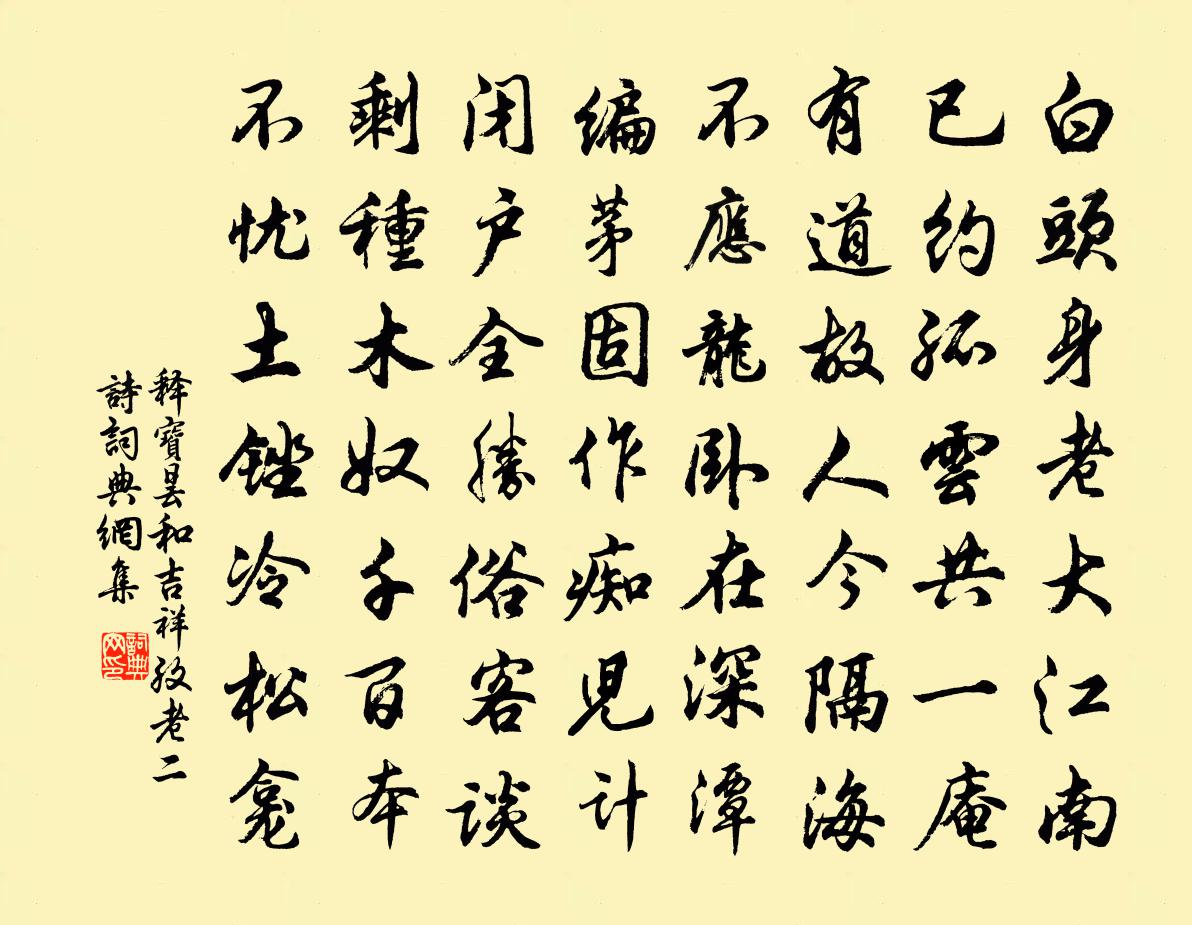 白頭身老大江南
已約孤雲共一庵
有道故人今隔海
不應龍卧在深潭
編茅固作痴兒計
闭户全勝俗客談
剩種木奴千百本
不忧土銼冷松龛
释寶昙和吉祥致老二
詩詞典網集
詞典网印